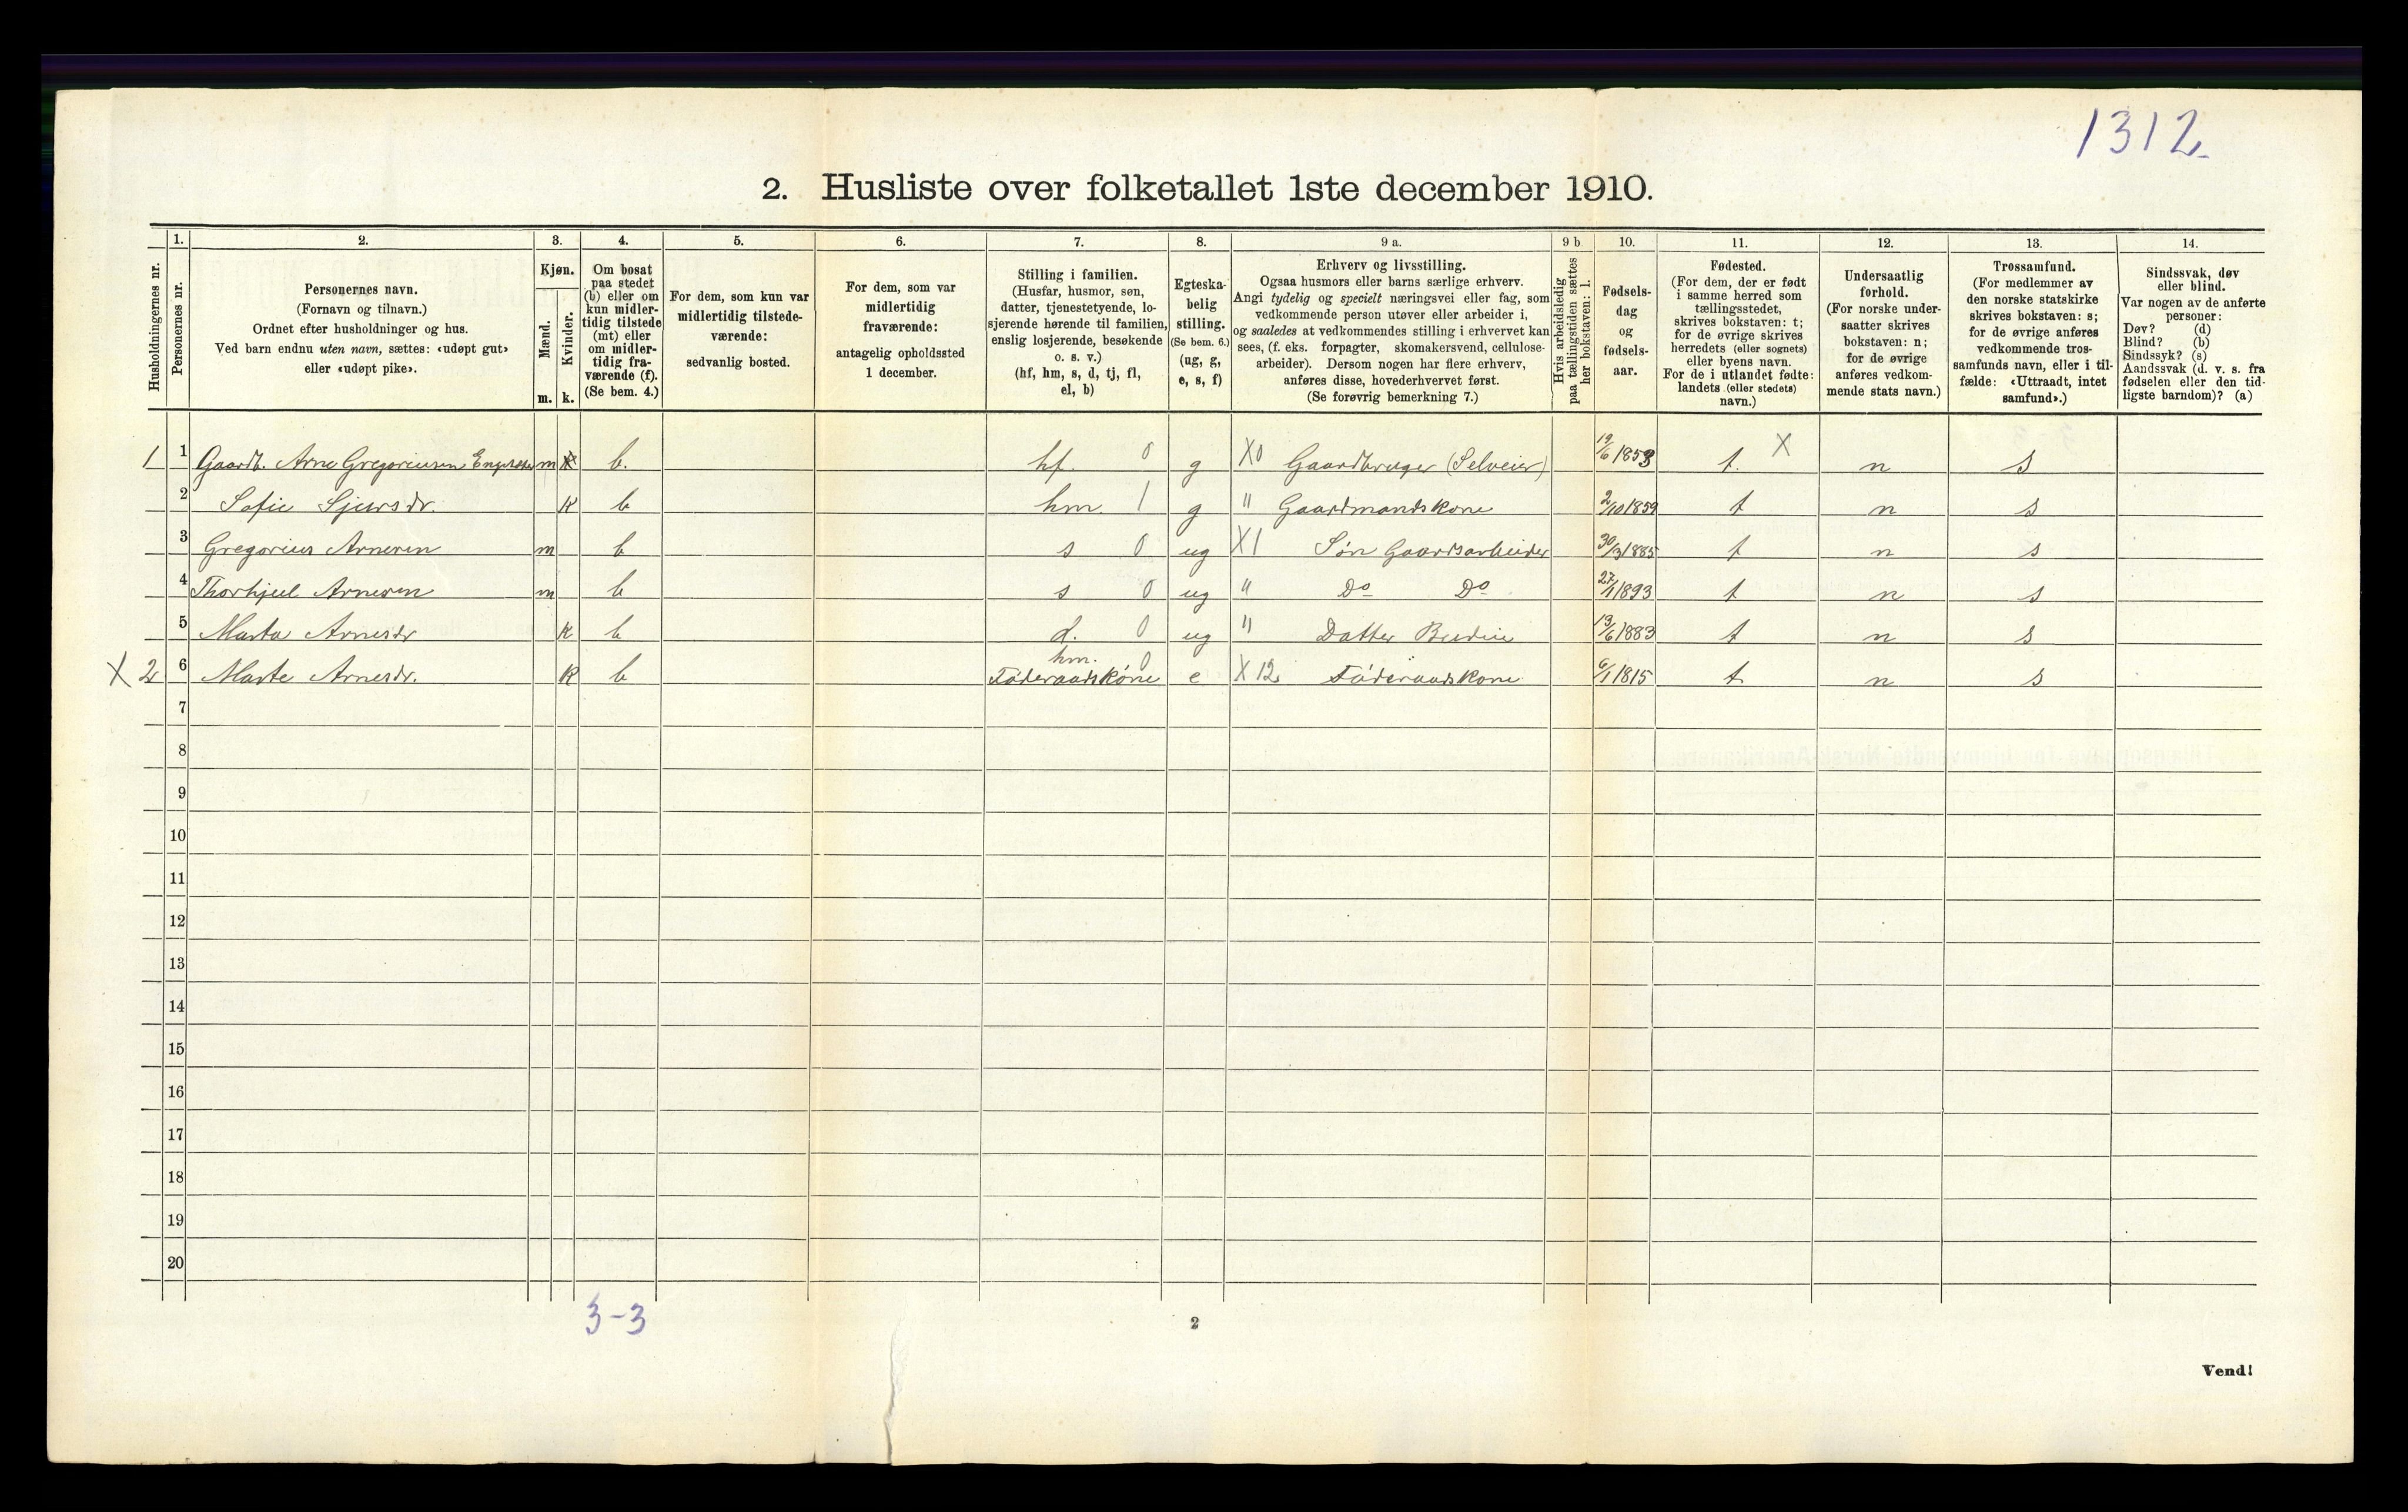 1312.
2. Husliste over folketallet 1ste december 1910.
Husholdningernes nr.
1.
Personernes nr.
2.
Personernes navn.
(Fornavn og tilnavn.)
Ordnet efter husholdninger og hus.
Ved barn endnu uten navn, sættes: «udøpt gut»
eller «udøpt pike».
3.
Kjøn.
Mænd.
Kvinder.
m. k.
4.
Om bosat
paa stedet
(b) eller om
kun midler-
tidig tilstede
(mt) eller
om midler-
tidig fra-
værende (f).
(Se bem. 4.)
5.
For dem, som kun var
midlertidig tilstede-
værende:
sedvanlig bosted.
6.
For dem, som var
midlertidig
fraværende:
antagelig opholdssted
1 december.
7.
Stilling i familien.
(Husfar, husmor, søn,
datter, tjenestetyende, lo-
sjerende hørende til familien,
enslig losjerende, besøkende
o. s. v.)
(hf, hm, s, d, tj, fl,
el, b)
8.
Egteska-
belig
stilling.
(Se bem. 6.)
(ug, g,
e, s, f)
9 a.
Erhverv og livsstilling.
Ogsaa husmors eller barns særlige erhverv.
Angi tydelig og specielt næringsvei eller fag, som
vedkommende person utøver eller arbeider i,
og saaledes at vedkommendes stilling i erhvervet kan
sees, (f. eks. forpagter, skomakersvend, cellulose-
arbeider). Dersom nogen har flere erhverv,
anføres disse, hovederhvervet først.
(Se forøvrig bemerkning 7.)
9 b
Hvis arbeidsledig
paa tællingstiden sættes
her bokstaven: l.
10.
Fødsels-
dag
og
fødsels-
aar.
11.
Fødested.
(For dem, der er født
i samme herred som
tællingsstedet,
skrives bokstaven: t;
for de øvrige skrives
herredets (eller sognets)
eller byens navn.
For de i utlandet fødte:
landets (eller stedets)
navn.)
12.
Undersaatlig
forhold.
(For norske under-
saatter skrives
bokstaven: n;
for de øvrige
anføres vedkom-
mende stats navn.)
13.
Trossamfund.
(For medlemmer av
den norske statskirke
skrives bokstaven: s;
for de øvrige anføres
vedkommende tros-
samfunds navn, eller i til-
fælde: «Uttraadt, intet
samfund».)
14.
Sindssvak, døv
eller blind.
Var nogen av de anførte
personer:
Døv? (d)
Blind? (b)
Sindssyk? (s)
Aandssvak (d. v. s. fra
fødselen eller den tid-
ligste barndom)? (a)
1 1 Gaardb. Arne Gregoriusen m b. hf. 0 g X0 Gaardbruger (Selveier) 19/6 1853 t. X n s
2 Sofie Sjursdr. K b hm. 1 g " Gaardmandskone 2/10 1859 t n s
3 Gregorius Arnesen m b s 0 ug X1 Søn Gaardsarbeider 30/3 1885 t n s
4 Thorkjel Arnesen m b s 0 ug " Do Do 27/1 1893 t n s
5 Marta Arnesdr K b d. 0 ug " Datter Budeie 13/6 1883 t n s
X 2 6 Marte Arnesdr. K b hm. Föderaadskone 0 e X 12 Föderaadskone 6/1 1815 t. n s
7
8
9
10
11
12
13
14
15
16
17
18
19
20
3-3
2
Vend!